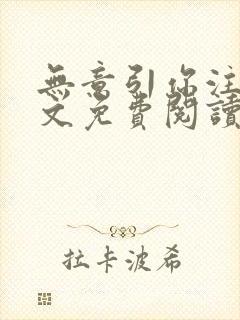 無意引你注
文免費閱讀
拉卡波希